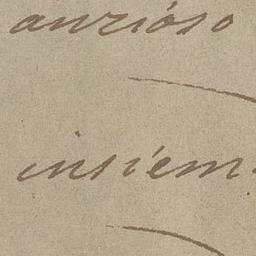 anzióso
insiem